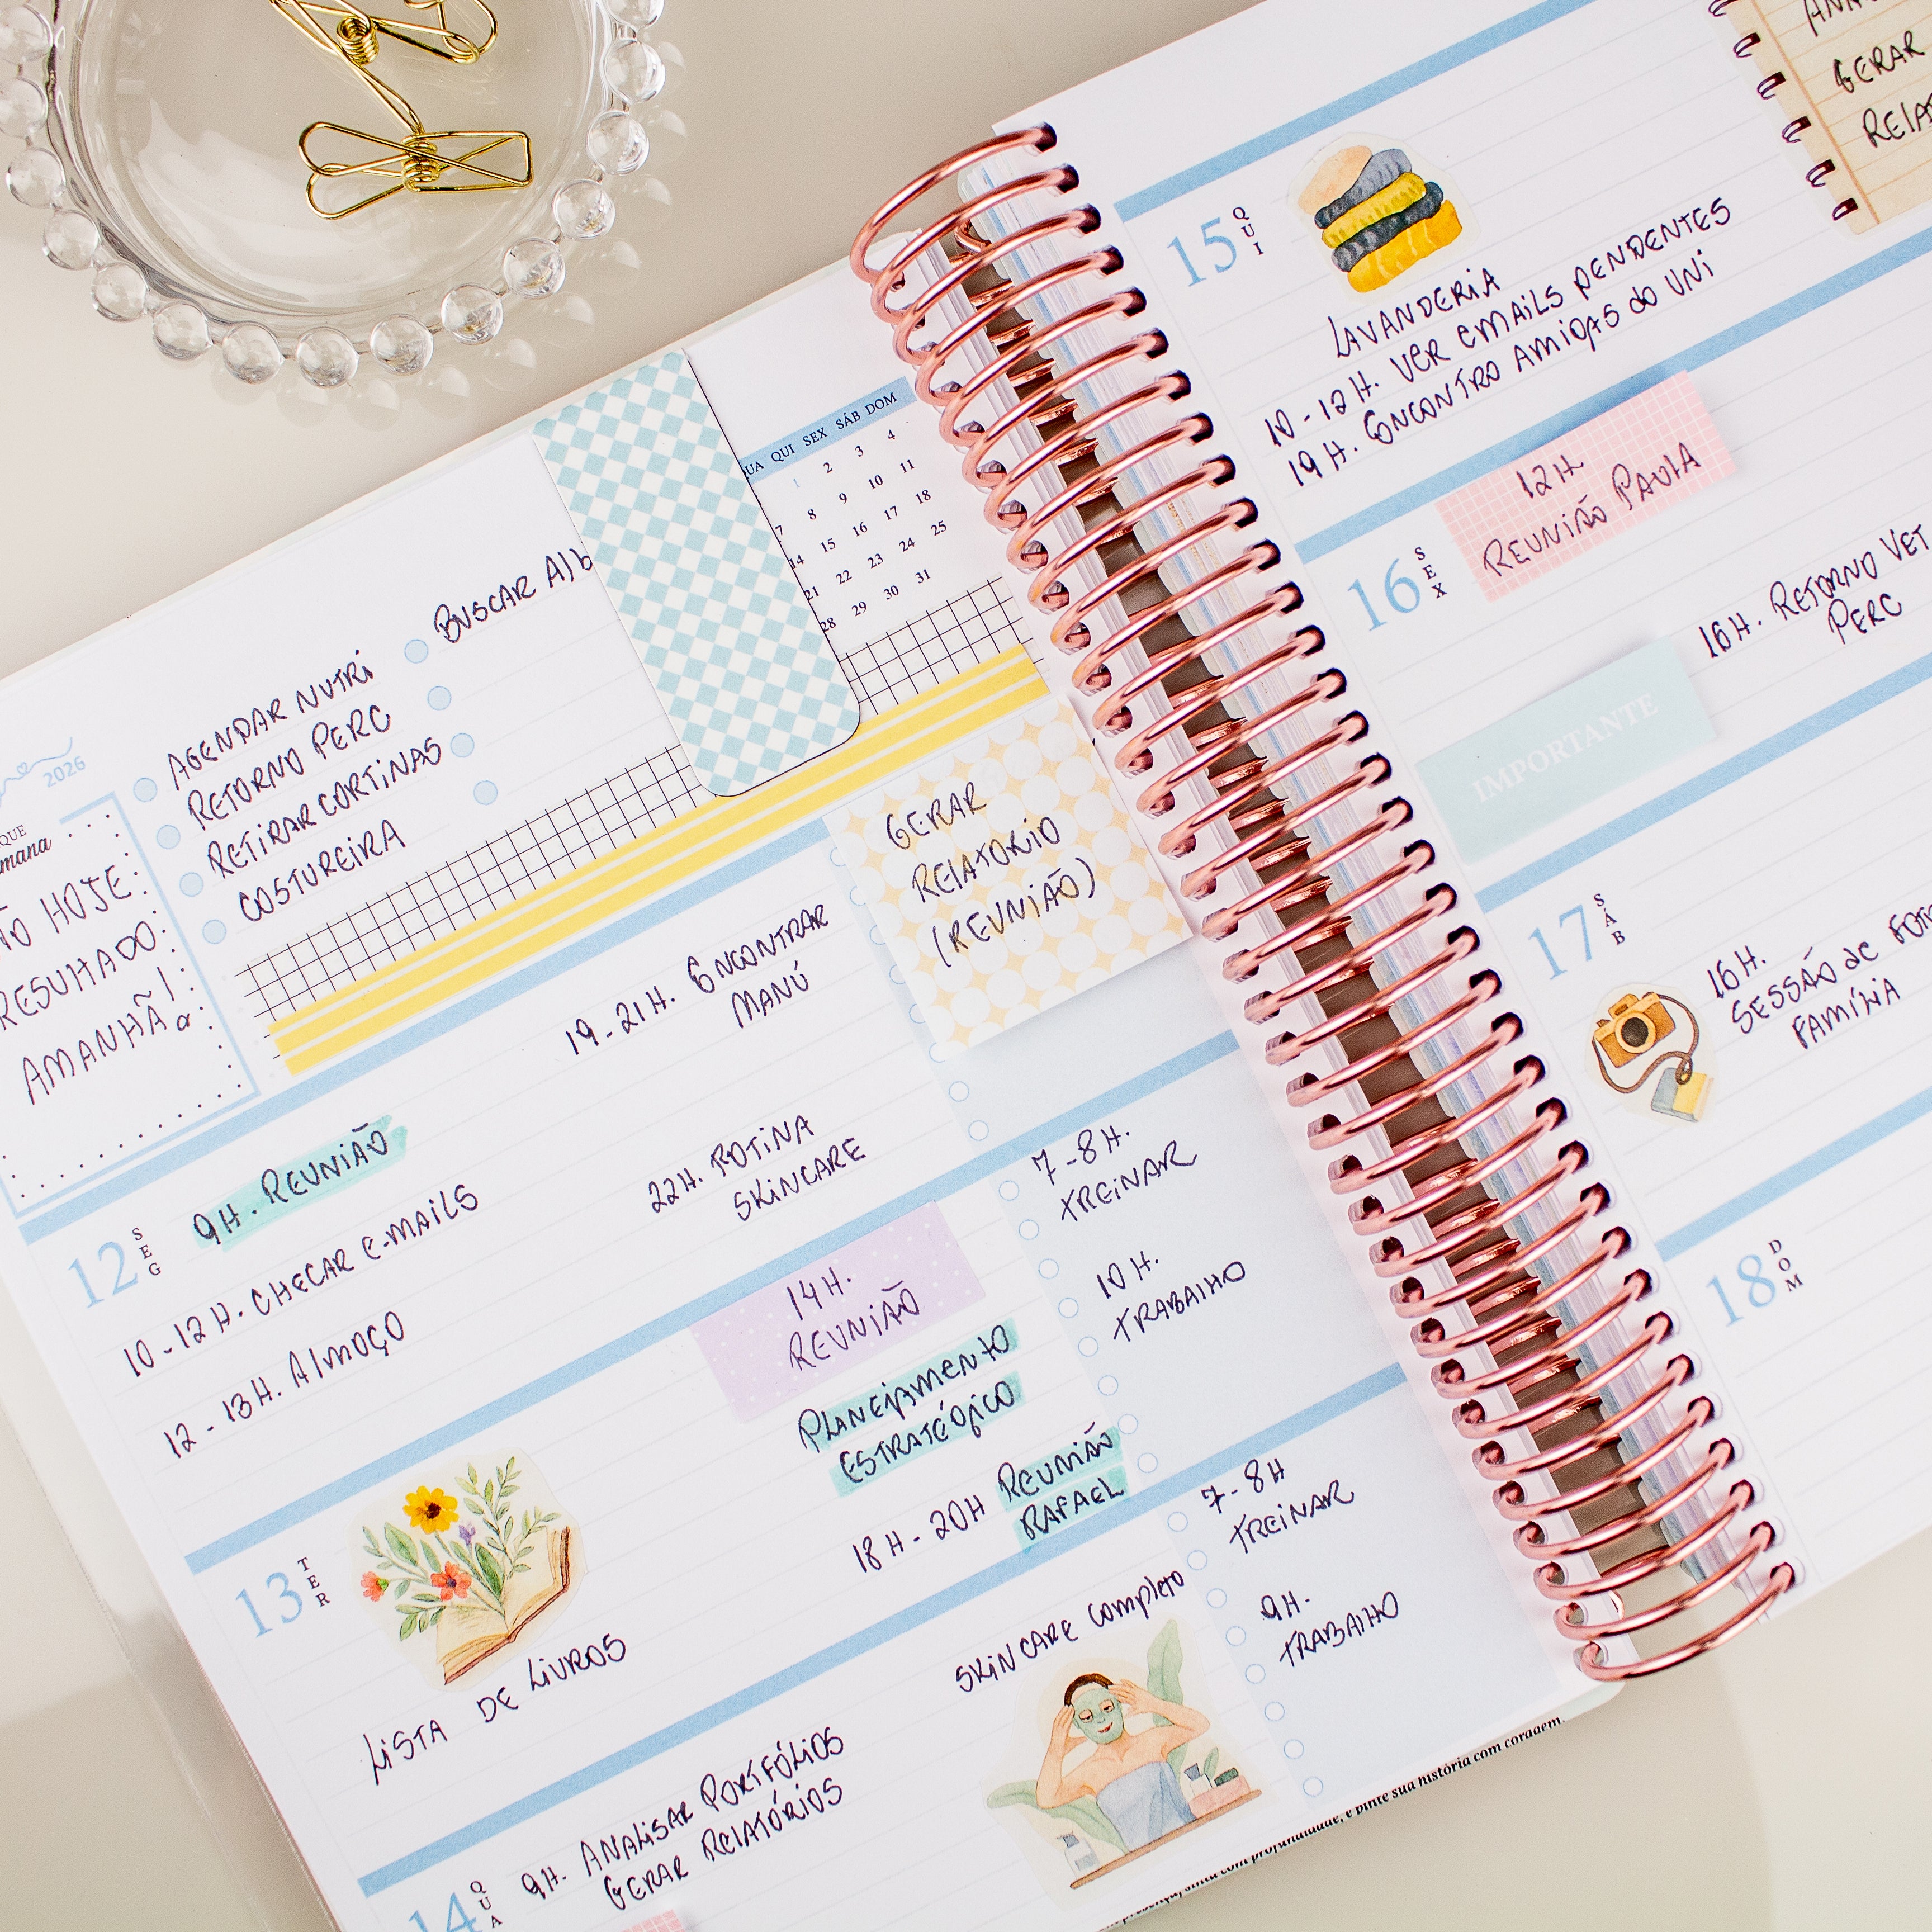 2026
QUE
mana
HOJE:
RESULTADO:
AMANHÃ!
AGENDAR NUTRI
RETORNO PERC
RETIRAR CORTINAS
COSTUREIRA
BUSCAR
QUI SEX SÁB DOM
1 2 3 4
8 9 10 11
14 15 16 17 18
21 22 23 24 25
28 29 30 31
GERAR
RELATORIO
(REUNIÃO)
12 SEG
9H. REUNIÃO
10-12H. CHECAR E-MAILS
12-13H. ALMOÇO
19-21H. ENCONTRAR
MANÚ
22H. ROTINA
SKINCARE
13 TER
LISTA DE LIVROS
14H.
REUNIÃO
PLANEJAMENTO
ESTRATÉGICO
18H-20H REUNIÃO
RAFAEL
7-8H.
TREINAR
10H.
TRABALHO
14 QUA
9H. ANALISAR PORTFÓLIOS
GERAR RELATÓRIOS
SKINCARE completo
7-8H
TREINAR
9H.
TRABALHO
com profundidade, e pinte sua história com coragem.
GERAR
15 QUI
LAVANDERIA
10-12H. VER EMAILS PENDENTES
19H. ENCONTRO AMIGAS do UNI
16 SEX
12H.
REUNIÃO PAULA
16H. RETORNO VET
PERC
IMPORTANTE
17 SÁB
16H.
SESSÃO de
FAMÍLIA
18 DOM